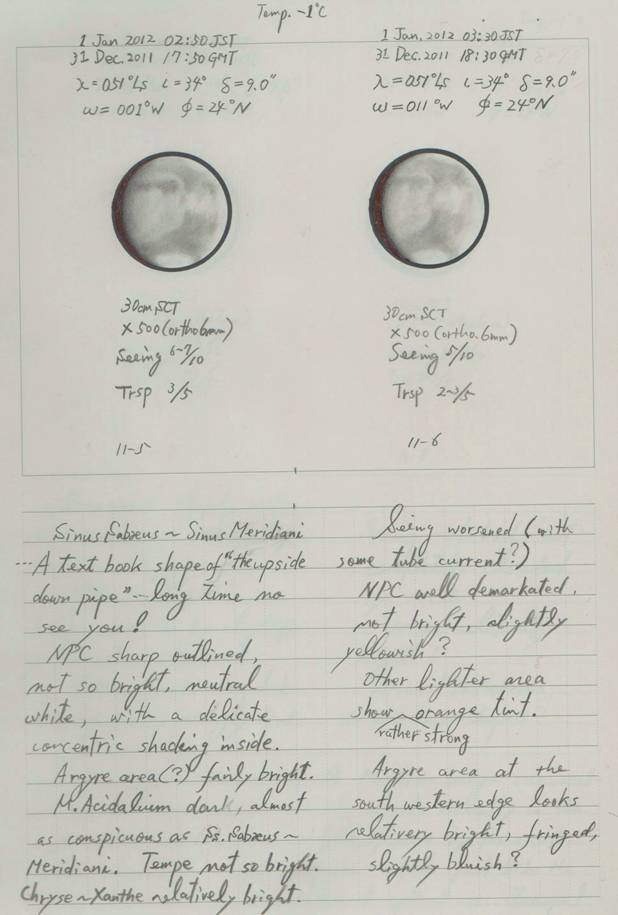 Temp. -1°C
1 Jan 2012 02:50 JST
31 Dec. 2011 17:50 GMT
λ=051°Ls ι=34° δ=9.0"
ω=001°W φ=24°N
30cm SCT
×500 (ortho 6mm)
Seeing 6~7/10
Trsp 3/5
11-5
1 Jan. 2012 03:30 JST
31 Dec. 2011 18:30 GMT
λ=051°Ls ι=34° δ=9.0"
ω=011°W φ=24°N
30cm SCT
×500 (ortho. 6mm)
Seeing 5/10
Trsp 2~3/5
11-6
Sinus Sabæus ~ Sinus Meridiani
... A text book shape of "the upside
down pipe" -- long time no
see you!
NPC sharp outlined,
not so bright, neutral
white, with a delicate
concentric shading inside.
Argyre area(?) fairly bright.
M. Acidalium dark, almost
as conspicuous as Ss. Sabæus ~
Meridiani. Tempe not so bright.
Chryse ~ Xanthe relatively bright.
Seeing worsened (with
some tube current?)
NPC well demarkated,
not bright, slightly
yellowish?
Other lighter area
show orange tint.
rather strong
Argyre area at the
south western edge looks
relativery bright, fringed,
slightly bluish?